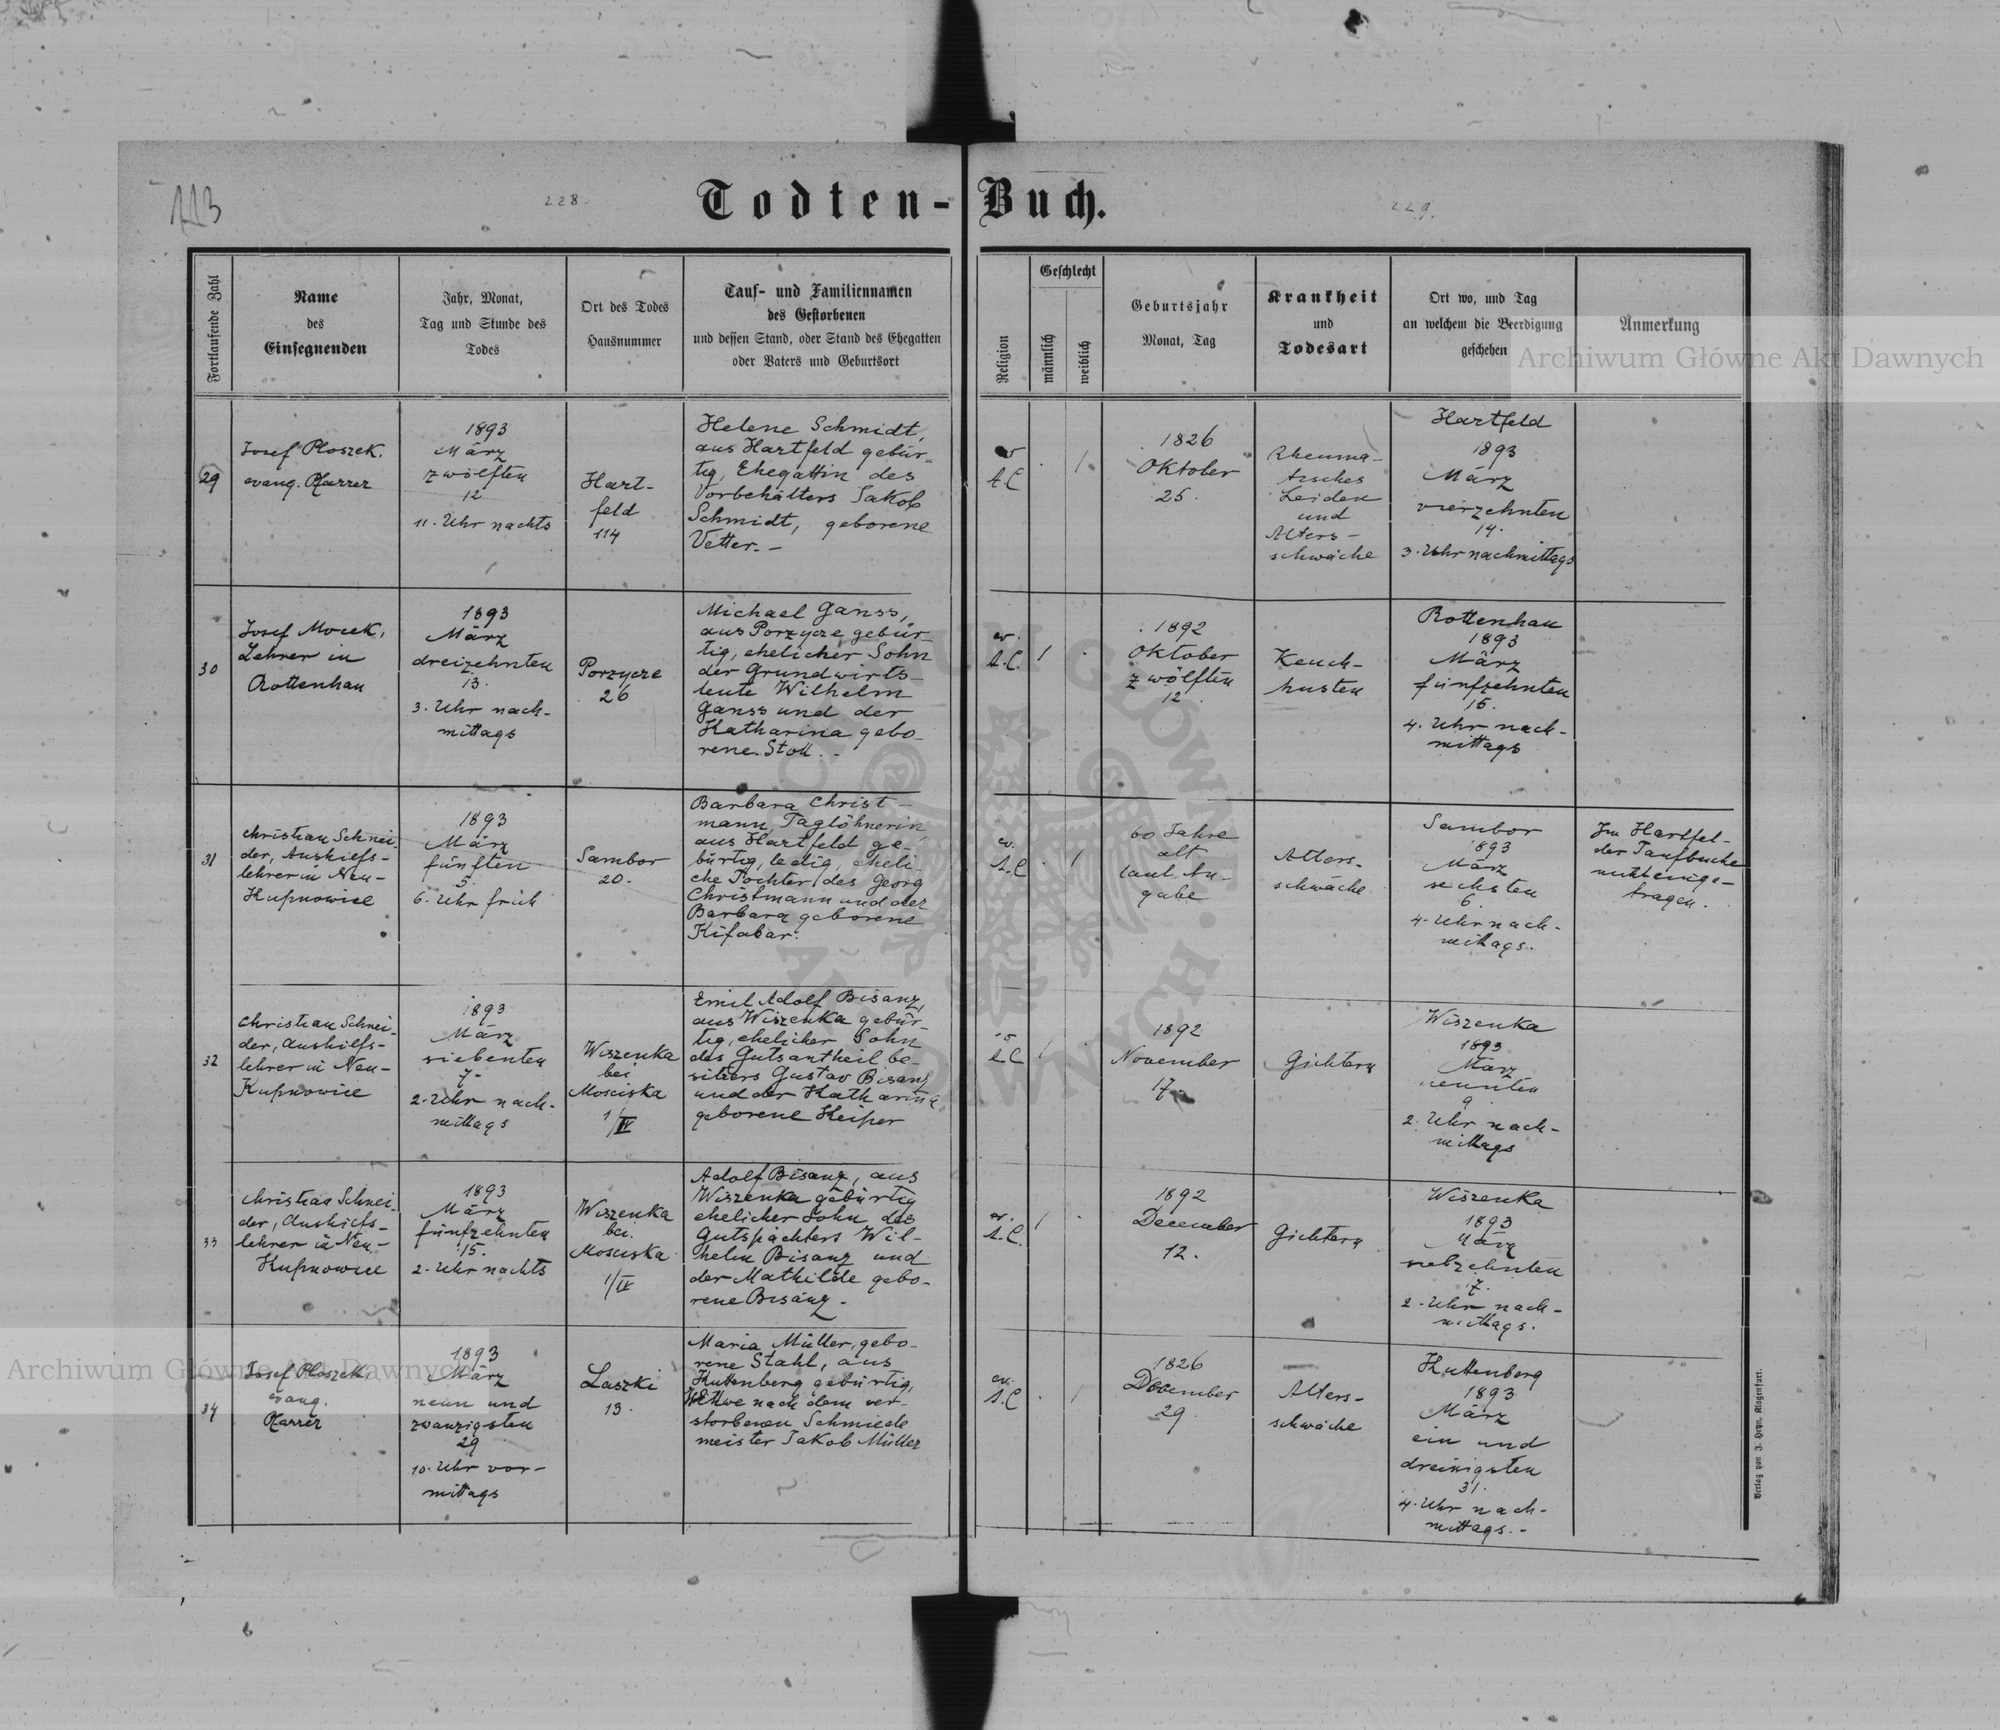 113
228
Todten-Buch.
229.
Fortlaufende Zahl
Name
des
Einsegnenden
Jahr, Monat,
Tag und Stunde des
Todes
Ort des Todes
Hausnummer
Tauf- und Familiennamen
des Gestorbenen
und dessen Stand, oder Stand des Ehegatten
oder Vaters und Geburtsort
Religion
Geschlecht
männlich
weiblich
Geburtsjahr
Monat, Tag
Krankheit
und
Todesart
Ort wo, und Tag
an welchem die Beerdigung
geschehen
Anmerkung
Archiwum Główne Akt Dawnych
29
Josef Ploszek.
evang. Pfarrer
1893
März
zwölften
12
11. Uhr nachts
Hart-
feld
114
Helene Schmidt,
aus Hartfeld gebür-
tig, Ehegattin des
Vorbehälters Jakob
Schmidt, geborene
Vetter. -
ev
A.C
. 1
1826
Oktober
25.
Rheuma-
tisches
Leiden
und
Alters-
schwäche
Hartfeld
1893
März
vierzehnten
14.
3. Uhr nachmittags
30
Josef Mocek,
Lehrer in
Rottenhan
1893
März
dreizehnten
13.
3. Uhr nach-
mittags
Porzycze
26
Michael Ganss,
aus Porzycze gebür-
tig, ehelicher Sohn
der Grundwirts-
leute Wilhelm
Ganss und der
Katharina gebo-
rene Stoll. -
ev.
A.C.
1 .
1892
Oktober
zwölften
12
Keuch-
husten
Rottenhan
1893
März
fünfzehnten
15.
4. Uhr nach-
mittags
31
Christian Schnei-
der, Aushilfs-
lehrer in Neu-
Kupnowice
1893
März
fünften
5.
6. Uhr früh
Sambor
20.
Barbara Christ-
mann, Taglöhnerin,
aus Hartfeld ge-
bürtig, ledig, eheli-
che Tochter des Georg
Christmann und der
Barbara geborene
Kifabar.
ev.
A.C
. 1
60 Jahre
alt
laut An-
gabe
Alters-
schwäche
Sambor
1893
März
sechsten
6.
4. Uhr nach-
mittags.
Im Hartfel-
der Taufbuche
nicht einge-
tragen.
32
Christian Schnei-
der, Aushilfs-
lehrer in Neu-
Kupnowice
1893
März
siebenten
7.
2. Uhr nach-
mittags
Wiszenka
bei
Mosciska
1/IV
Emil Adolf Bisanz,
aus Wiszenka gebür-
tig, ehelicher Sohn
des Gutsantheilbe-
sitzers Gustav Bisanz
und der Katharina
geborene Keiper
ev
A.C
1 .
1892
November
17.
Gichtern
Wiszenka
1893
März
neunten
9.
2. Uhr nach-
mittags
33
Christian Schnei-
der, Aushilfs-
lehrer in Neu-
Kupnowice
1893
März
fünfzehnten
15.
2. Uhr nachts
Wiszenka
bei
Mosciska
1/IV
Adolf Bisanz, aus
Wiszenka gebürtig
ehelicher Sohn des
Gutspächters Wil-
helm Bisanz und
der Mathilde gebo-
rene Bisanz. -
ev.
A.C.
1 .
1892
December
12.
Gichtern
Wiszenka
1893
März
siebzehnten
17.
2. Uhr nach-
mittags.
34
Josef Ploszek,
evang.
Pfarrer
1893
März
neun und
zwanzigsten
29
10. Uhr vor-
mittags
Laszki
13.
Maria Müller, gebo-
rene Stahl, aus
Kuttenberg gebürtig,
Witwe nach dem ver-
storbenen Schmiede
meister Jakob Müller
ev.
A.C
. 1
1826
December
29
Alters-
schwäche
Kuttenberg
1893
März
ein und
dreissigsten
31.
4. Uhr nach-
mittags. -
Archiwum Główne Akt Dawnych
Verlag von J. Heyn, Klagenfurt.